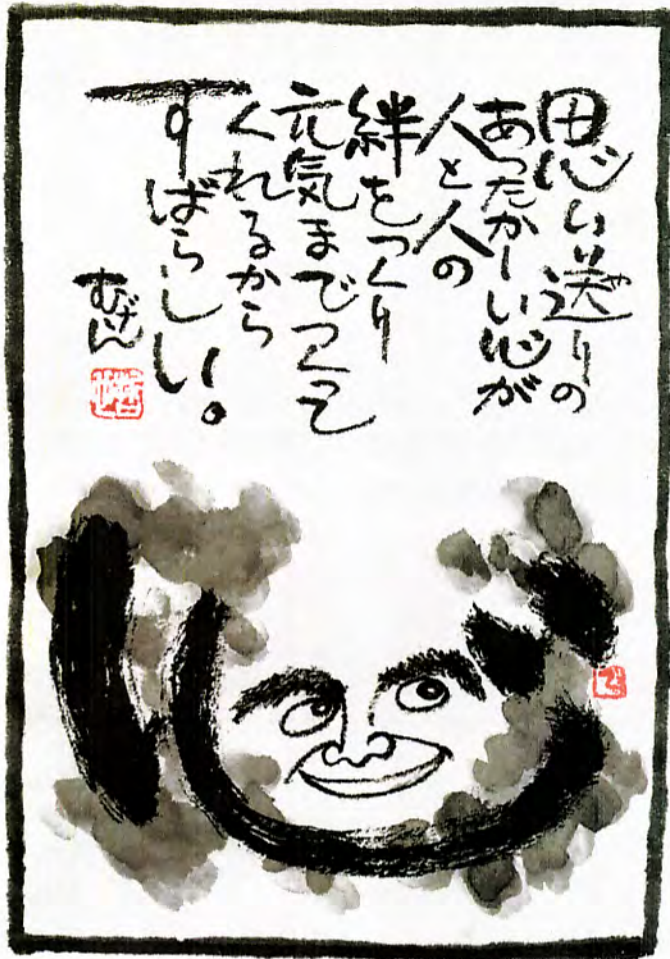 思い送りの
あったかーい心が
人と人の
絆をつくり
元気までつくって
くれるから
すばらしい。
むげん
心